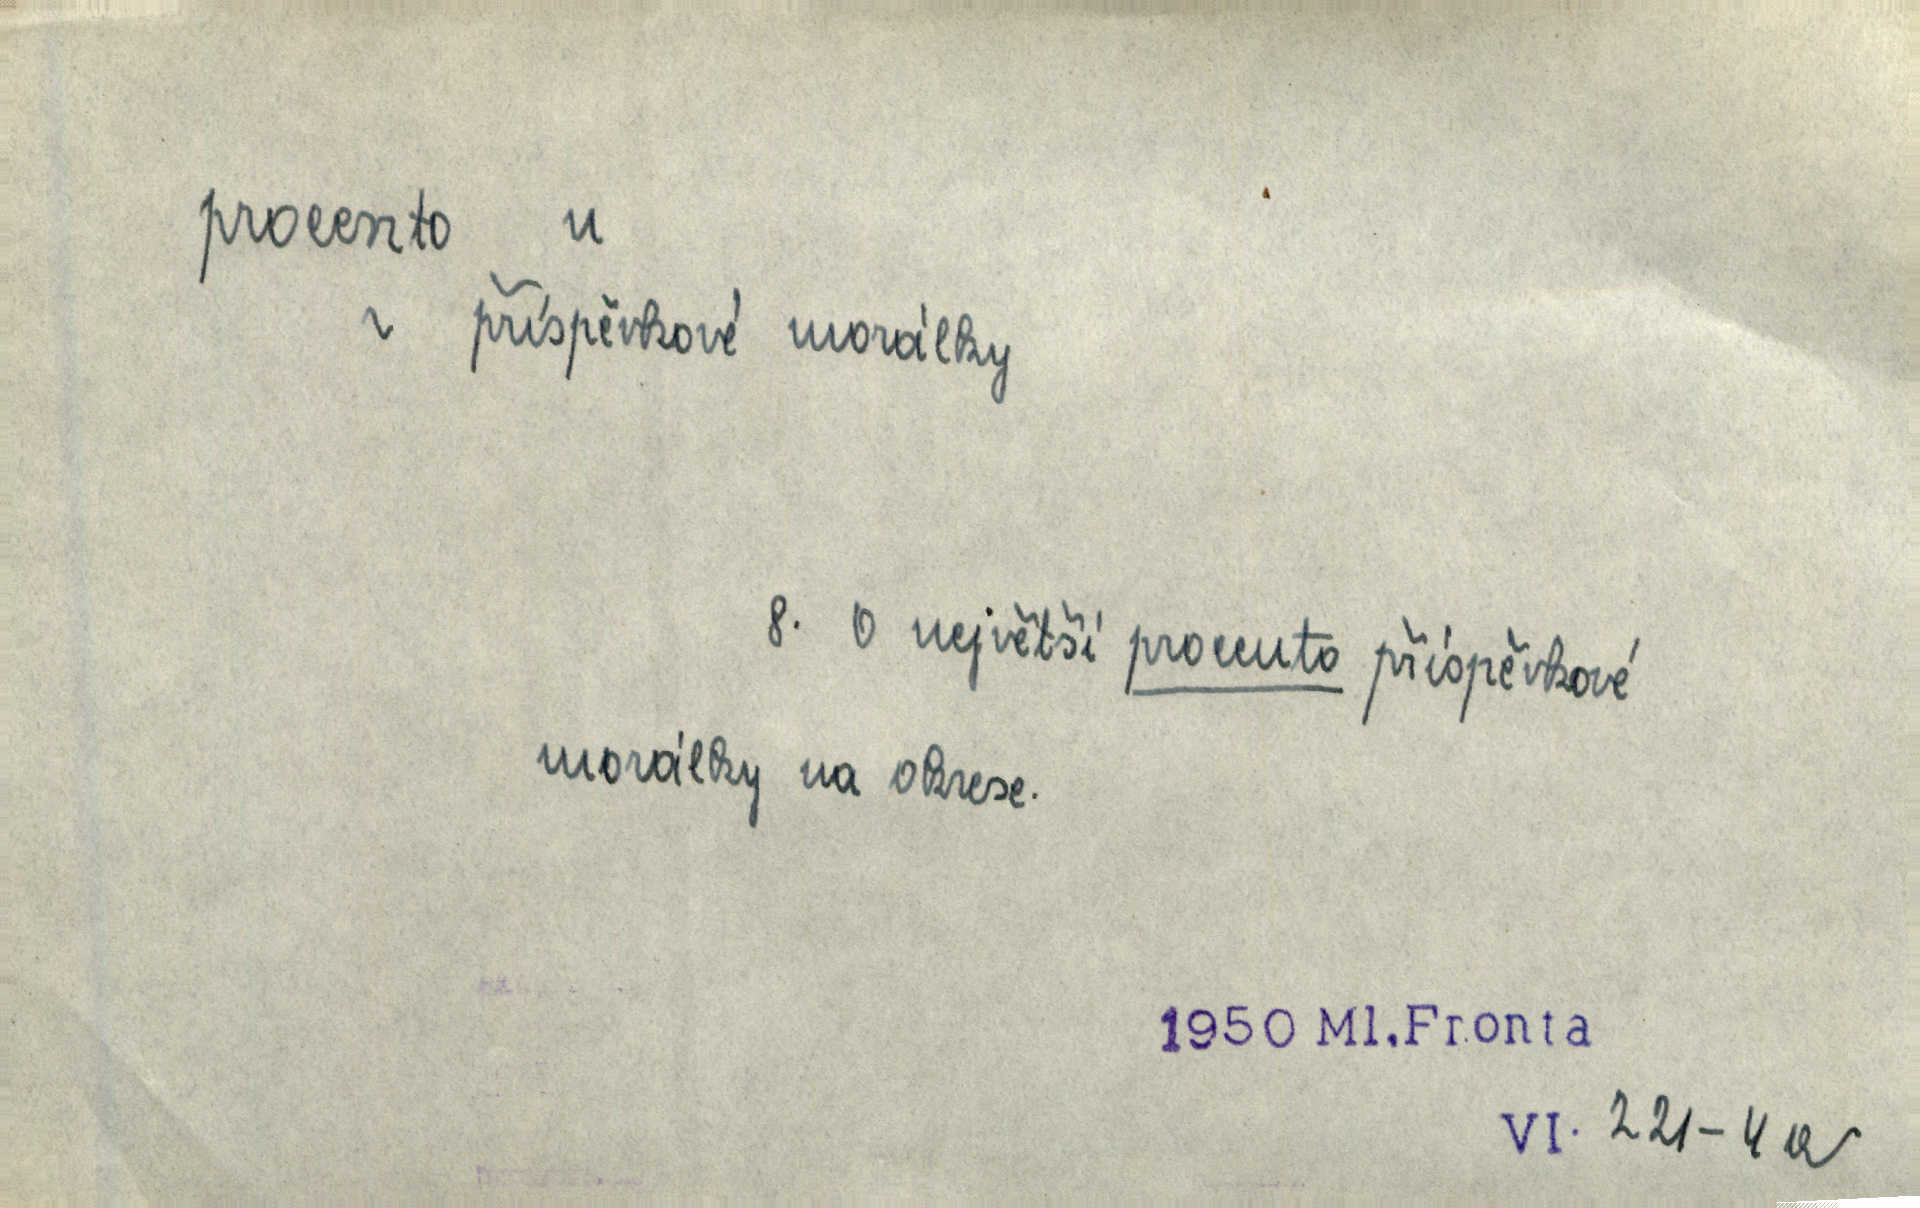 procento u
~ příspěvkové morálky
8. O největší procento příspěvkové
morálky na okrese.
1950 Ml.Fronta
VI. 221-4